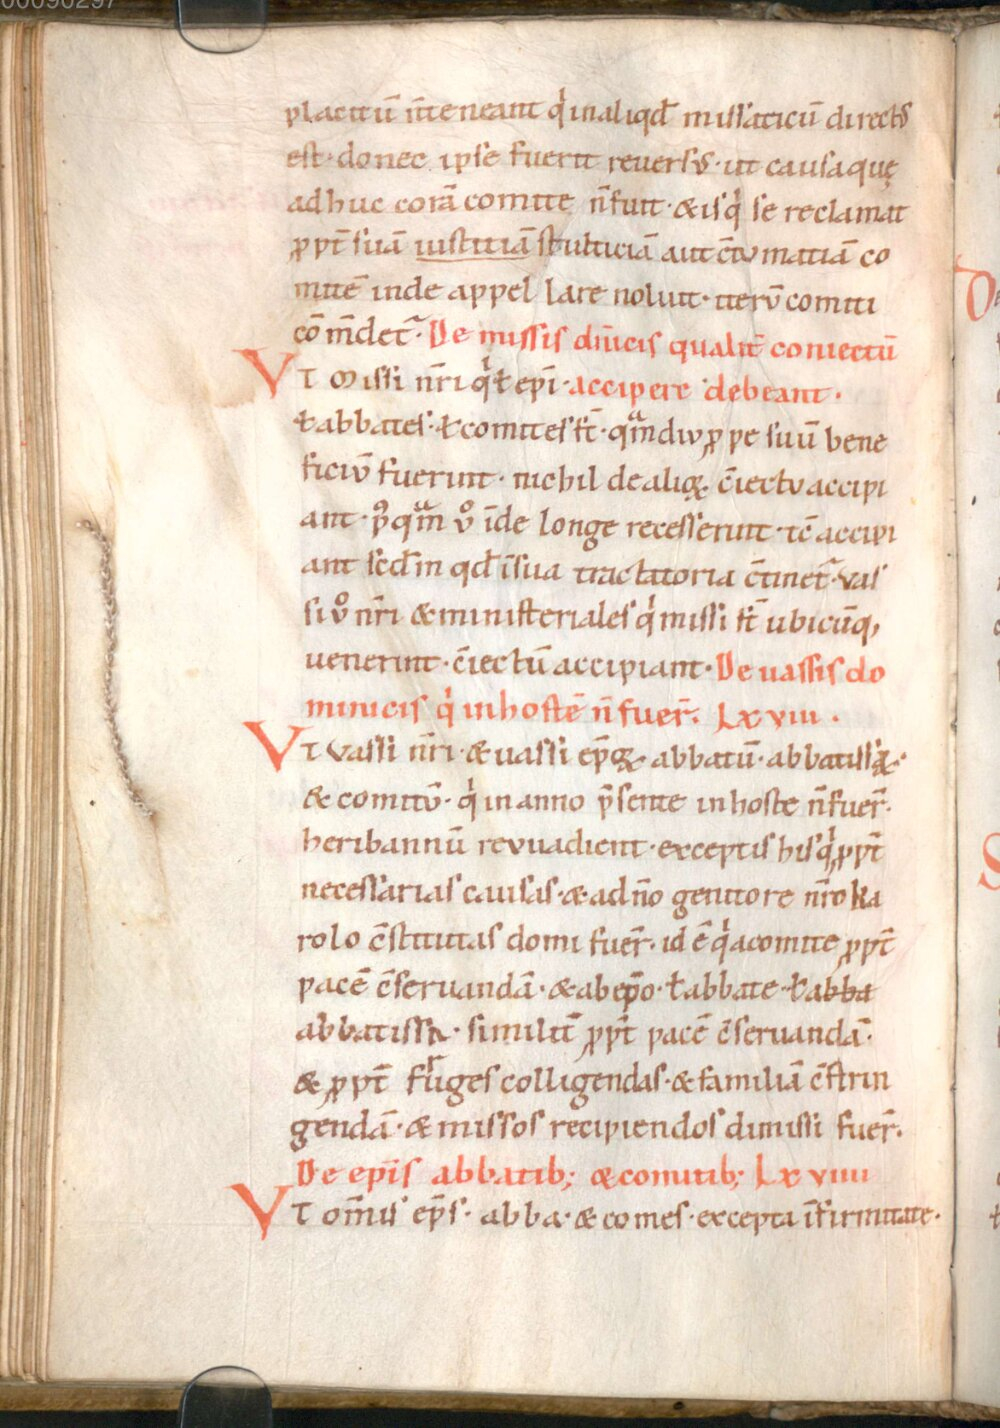 00090297
placitū n̄teneant qͥ inaliqđ missaticū directꝰ
est· donec ipse fuerit reuersꝰ· ut causa quę
adhuc corā comite n̄ fuit· & is qͥ se reclamat
ꝓpt̄ suā iustitiā stulticiā aut c̄tumatiā co
mitē inde appellare noluit· iterū comiti
cōm̄det᷑· De missis dn̄icis qualit̄ coniectū
VT Missi nr̄i qͥ ł ep̄i· accipere debeant·
ł abbates· ł comites st̄· qͣmdiu ꝓpe suū bene
ficiū fuerint· nichil de aliqꝝ c̄iectu accipi
ant· p̊qͣm ů īde longe recesserint· tc̄ accipi
ant scđm qđ īsua tractatoria c̄tinet᷑· vas
si ů nr̄i & ministeriales qͥ missi st̄ ubicūqꝫ
uenerint· c̄iectū accipiant· De uassis do
minicis qͥ in hostē n̄ fuer̄· LXVIII·
VT Vassi nr̄i· & uassi ep̄oꝝ· abbatū· abbatissaꝝ·
& comitū· qͥ in anno p̄sente in hoste n̄ fuer̄·
heribannū revuadient· exceptis his qͥ ꝓpt̄
necessarias causas· & a dn̄o genitore nr̄o Ka
rolo c̄stitutas domi fuer̄· id ē qͥ a comite ꝓpt̄
pacē c̄seruandā· & ab ep̄o· ł abbate· ł abba
abbatissa· similit̄ ꝓpt̄ pacē c̄seruandā·
& ꝓpt̄ fruges colligendas· & familiā c̄strin
gendā· & missos recipiendos dimissi fuer̄·
De ep̄is abbatib; & comitib; LXVIIII
VT om̄is ep̄s· abba· & comes· excepta īfirmitate·